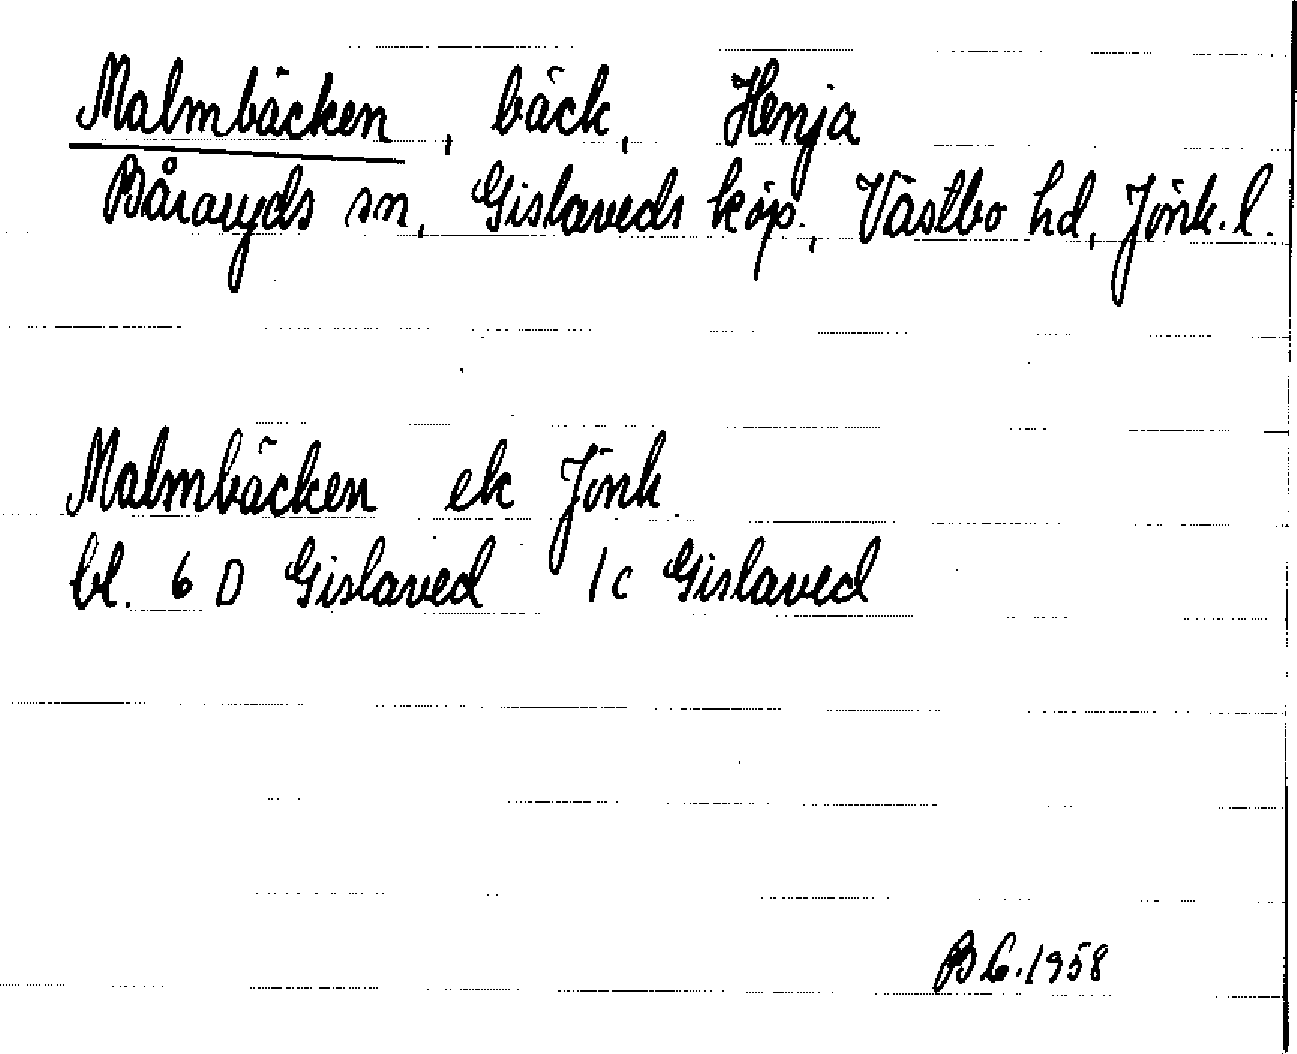 Malmbäcken, bäck, Henja
Båraryds sn, Gislaveds köp., Västbo hd, Jönk. l.
Malmbäcken ek Jönk
bl. 6 D Gislaved 1c Gislaved
1958